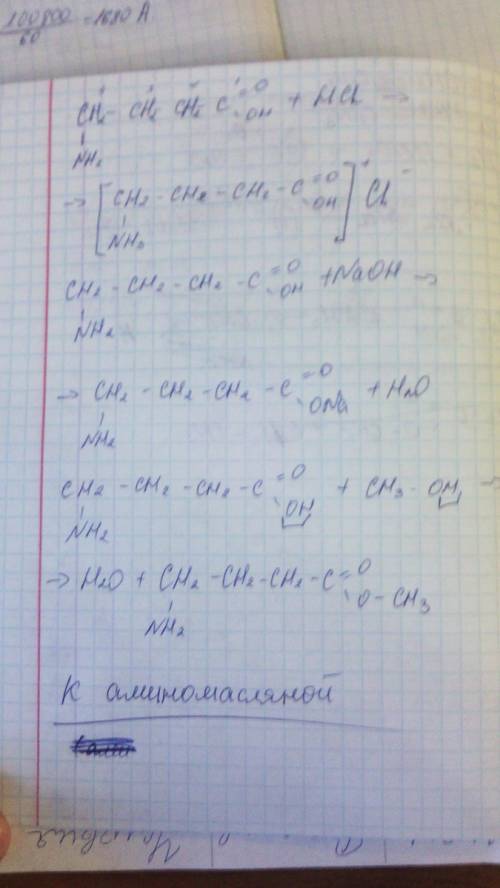 100800/60 = 1680 A
CH2 - CH2 CH2 C =O -OH + HCl →
NH2
→ [CH2 - CH2 - CH2 - C =O -OH]⁺ Cl⁻
NH3
CH2 - CH2 - CH2 - C =O -OH + NaOH →
NH2
→ CH2 - CH2 - CH2 - C =O ONa + H2O
NH2
CH2 - CH2 - CH2 - C =O OH + CH3 - OH →
NH2
→ H2O + CH2 - CH2 - CH2 - C =O O - CH3
NH2
К аминомасляной